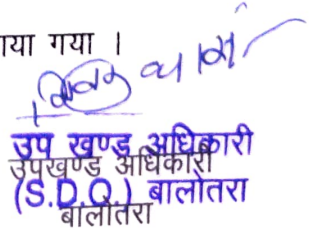 गया गया ।
उप खण्ड अधिकारी
उपखण्ड अधिकारी
(S.D.O.) बालोतरा
बालोतरा